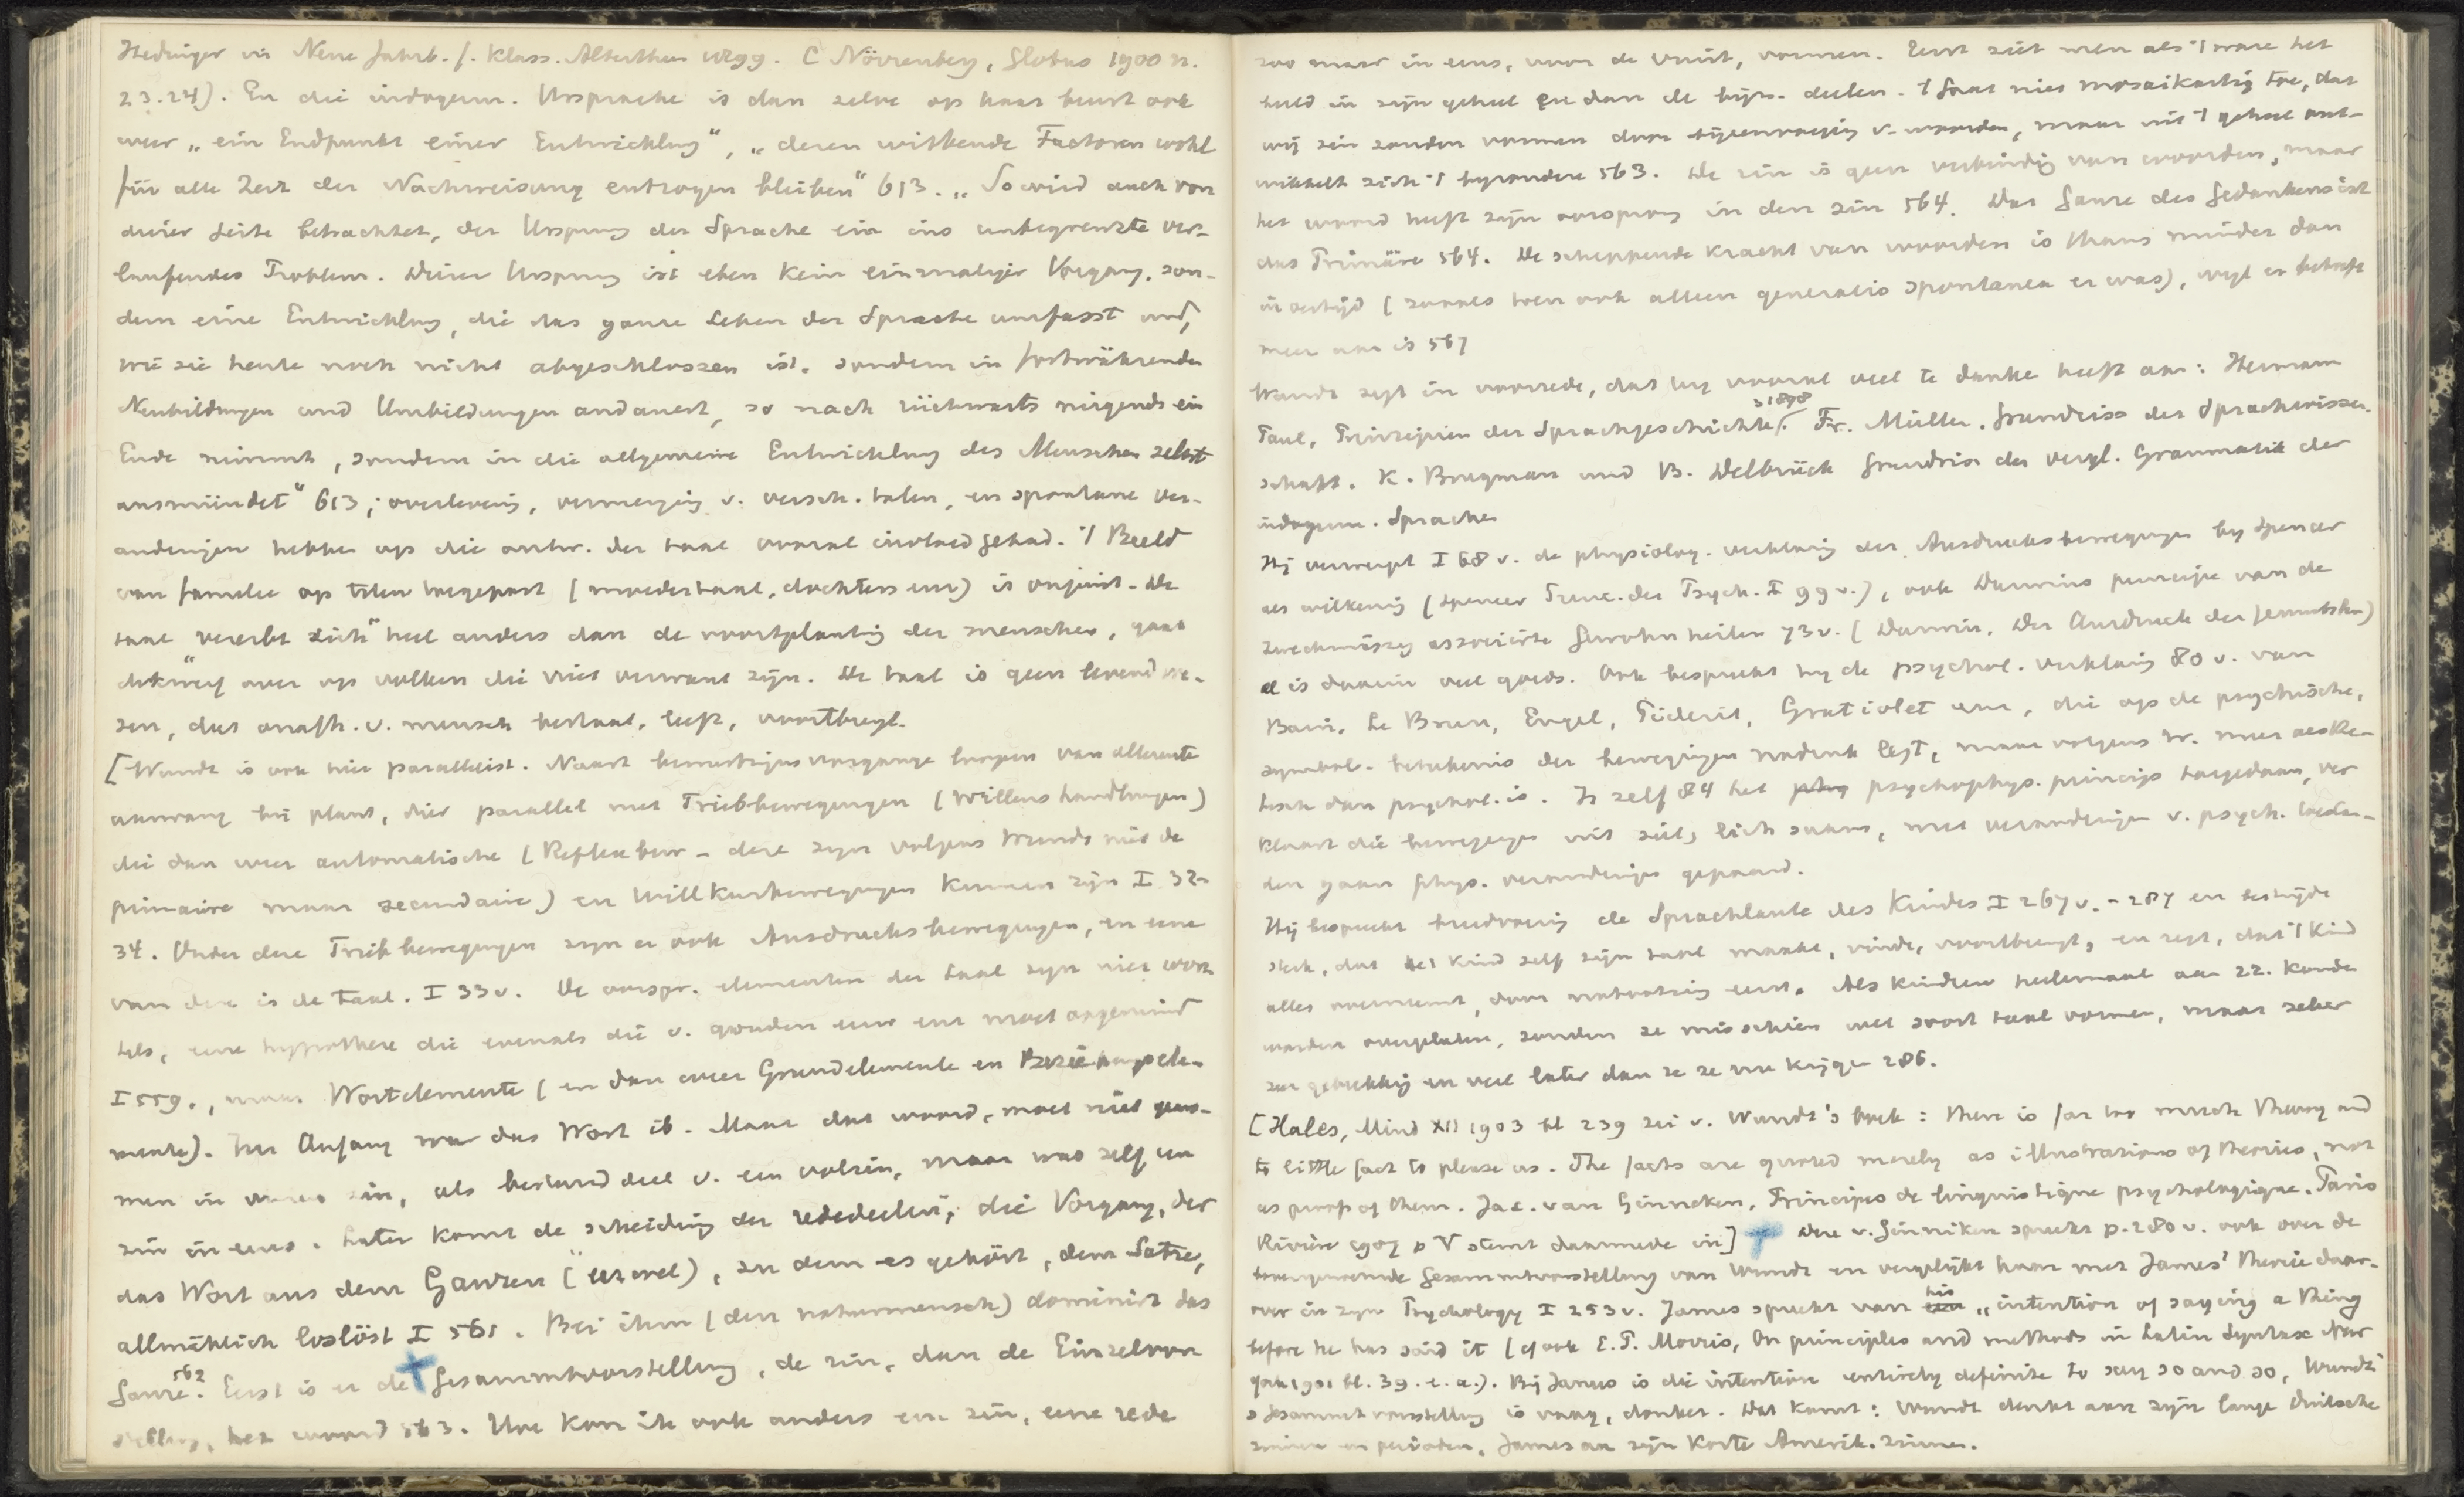 Hedinger in Neue Jahrb. f. Klass. Alterthum 1899. C Nörrenberg, Globus 1900 n.
23.24). En die indogerm. Ursprache is dan zelve op haar beurt ook
weer „ein Endpunkt einer Entwicklung", „deren wirkende Factoren wohl
für alle Zeit der Nachweisung entzogen bleiben" 613. „So wird auch von
dieser Seite betrachtet, der Ursprung der Sprache ein ins unbegrenzte ver-
laufendes Problem. Dieser Ursprung ist eben kein einmaliger Vorgang, son-
dern eine Entwicklung, die das ganze Leben der Sprache umfasst und,
wie sie heute noch nicht abgeschlossen ist, sondern in fortwährenden
Neubildungen und Umbildungen andauert, so nach rückwarts nirgends ein
Ende nimmt, sondern in die allgemeine Entwicklung des Menschen selbst
ausmündet" 613; overlevering, vermenging v. versch. talen, en spontane ver-
anderingen hebben op die ontw. der taal vooral invloed gehad. 't Beeld
van familie op talen toegepast (moedertaal, dochters enz) is onjuist. De
taal "vererbt sich" heel anders dan de voortplanting der menschen, gaat
dikwerf over op volken die niet verwant zijn. De taal is geen levend we-
zen, dat onafh. v. mensch bestaat, leeft, voortbrengt.
[Wundt is ook hier parallelist. Naast bewustzijnsvorgange loopen van allereerste
aanvang bij plant, dier parallel met Triebbewegungen (Willenshandlungen)
die dan weer automatische (Reflexbew – deze zijn volgens Wundt niet de
primaire maar secundaire) en Willkurbewegungen kunnen zijn I 32-
34. Onder deze Triebbewegungen zijn er ook Ausdrucksbewegungen, en eene
van deze is de taal. I 33 v. De oorspr. elementen der taal zijn niet wor-
tels, eene hypothese die evenals die v. goden enz moet
I 559., maar Wortelemente (en dan weer Grundelemente en Beziehungsele-
mente). Im Anfang war das Wort ib. Maar dat woord, moet niet geno-
men in onzen zin, als bestanddeel v. een volzin, maar was zelf een
zin in eens. Later komt de scheiding der rededeelen, die Vorgang, der
das Wort aus dem Ganzen (), zu dem es gehört, dem Satze,
allmählich loslöst I 561. Bei ihm (den naturmensch) dominirt das
Ganze 562. Eerst is er de Gesammtvorstellung, de zin, dan de Einzelvor
stellung, het woord 563. Hoe kon ik ook anders een zin, eene rede
zoo maar in eens, voor de vuist, vormen. Eerst ziet men als 't ware het
beeld in zijn geheel en dan de bijz. deelen. 't Gaat niet mosaikartig toe, dat
wij zin zouden vormen door bijeenvoeging v. woorden, maar uit 't geheel ont-
wikkelt zich 't byzondere 563. De zin is geen verbinding van woorden, maar
het woord heeft zijn oorsprong in den zin 564. Das Ganze des Gedankens ist
das Primäre 564. De scheppende kracht van woorden is thans minder dan
in oertijd (zooals toen ook alleen generatio spontanea er was), wijl er behoefte
meer aan is 567
Wundt zegt in voorrede, dat hij vooral veel te danke heeft aan: Hermann
Paul, Prinzipien der Sprachgeschichte 3 1898. Fr. Müller. Grundriss der Sprachwissen-
schaft. K. Brugman und B. Delbrück Grundriss der vergl. Grammatik der
indogerm. Sprachen
Hij verwerpt I 68 v. de physiolog. verklaring der Ausdrucksbewegungen by Spencer
als wilkeurig (Spencer Princ. der Psych. I 99 v.), ook Darwins principe van de
zweckmässig associirte Gewohnheiten 73 v. (Darwin. Der Ausdruck der Gemutsbew)
al is daarin veel goeds. Ook bespreekt hij de psychol. verklaring 80 v. van
Bain, Le Brun, Engel, Piderit, Gratiolet enz, die op de psychische,
symbol. beteekenis der bewegingen nadruk legt, maar volgens W. meer aesthe-
tisch dan psychol. is. Zelf 84 het psychophys. principe toegedaan, ver
klaart die bewegingen uit ziel, lich samen, met veranderingen v. psych. toestan-
den gaan phys. veranderingen gepaard.
Hij bespreekt breedvoerig de Sprachlaute des Kindes I 267 v. - 287 en bestrijdt
sterk, dat het kind zelf zijn taal maakt, vindt, voortbrengt, en zegt, dat 't kind
alles overneemt, door nabootsing leert. Als kinderen heelemaal aan zz. konden
worden overgelaten, zouden ze misschien wel soort taal vormen, maar zeker
zeer gebrekkig en veel later dan ze ze nu krijgen 286.
[Hales, Mind XII 1903 bl 239 zei v. Wundt's boek: there is far too much theory and
to little fact to please us. The facts are quoted merely as illustrations of theories, not
as proofs of them. Jac. van Ginneken, Principes de linguistique psychologique. Paris
Rivière 1907 p V stemt daarmede in] Deze v. Ginniken spreekt p. 280 v. ook over de
Gesammtvorstellung van Wundt en vergelijkt haar met James' theorie daar-
over in zijn Psychology I 253 v. James spreekt van his „intention of saying a thing
before he has said it (cf ook E. P. Morris, On principles and methods in Latin Syntax New
York 1901 bl. 39. e. a.). Bij James is die intention entirely definite to say so and so, Wundt'
s Gesammtvorstellung is vaag, donker. Dat komt: Wundt denkt aan zijn lange Duitsche
zinnen en perioden, James aan zijn korte Amerik. zinnen.